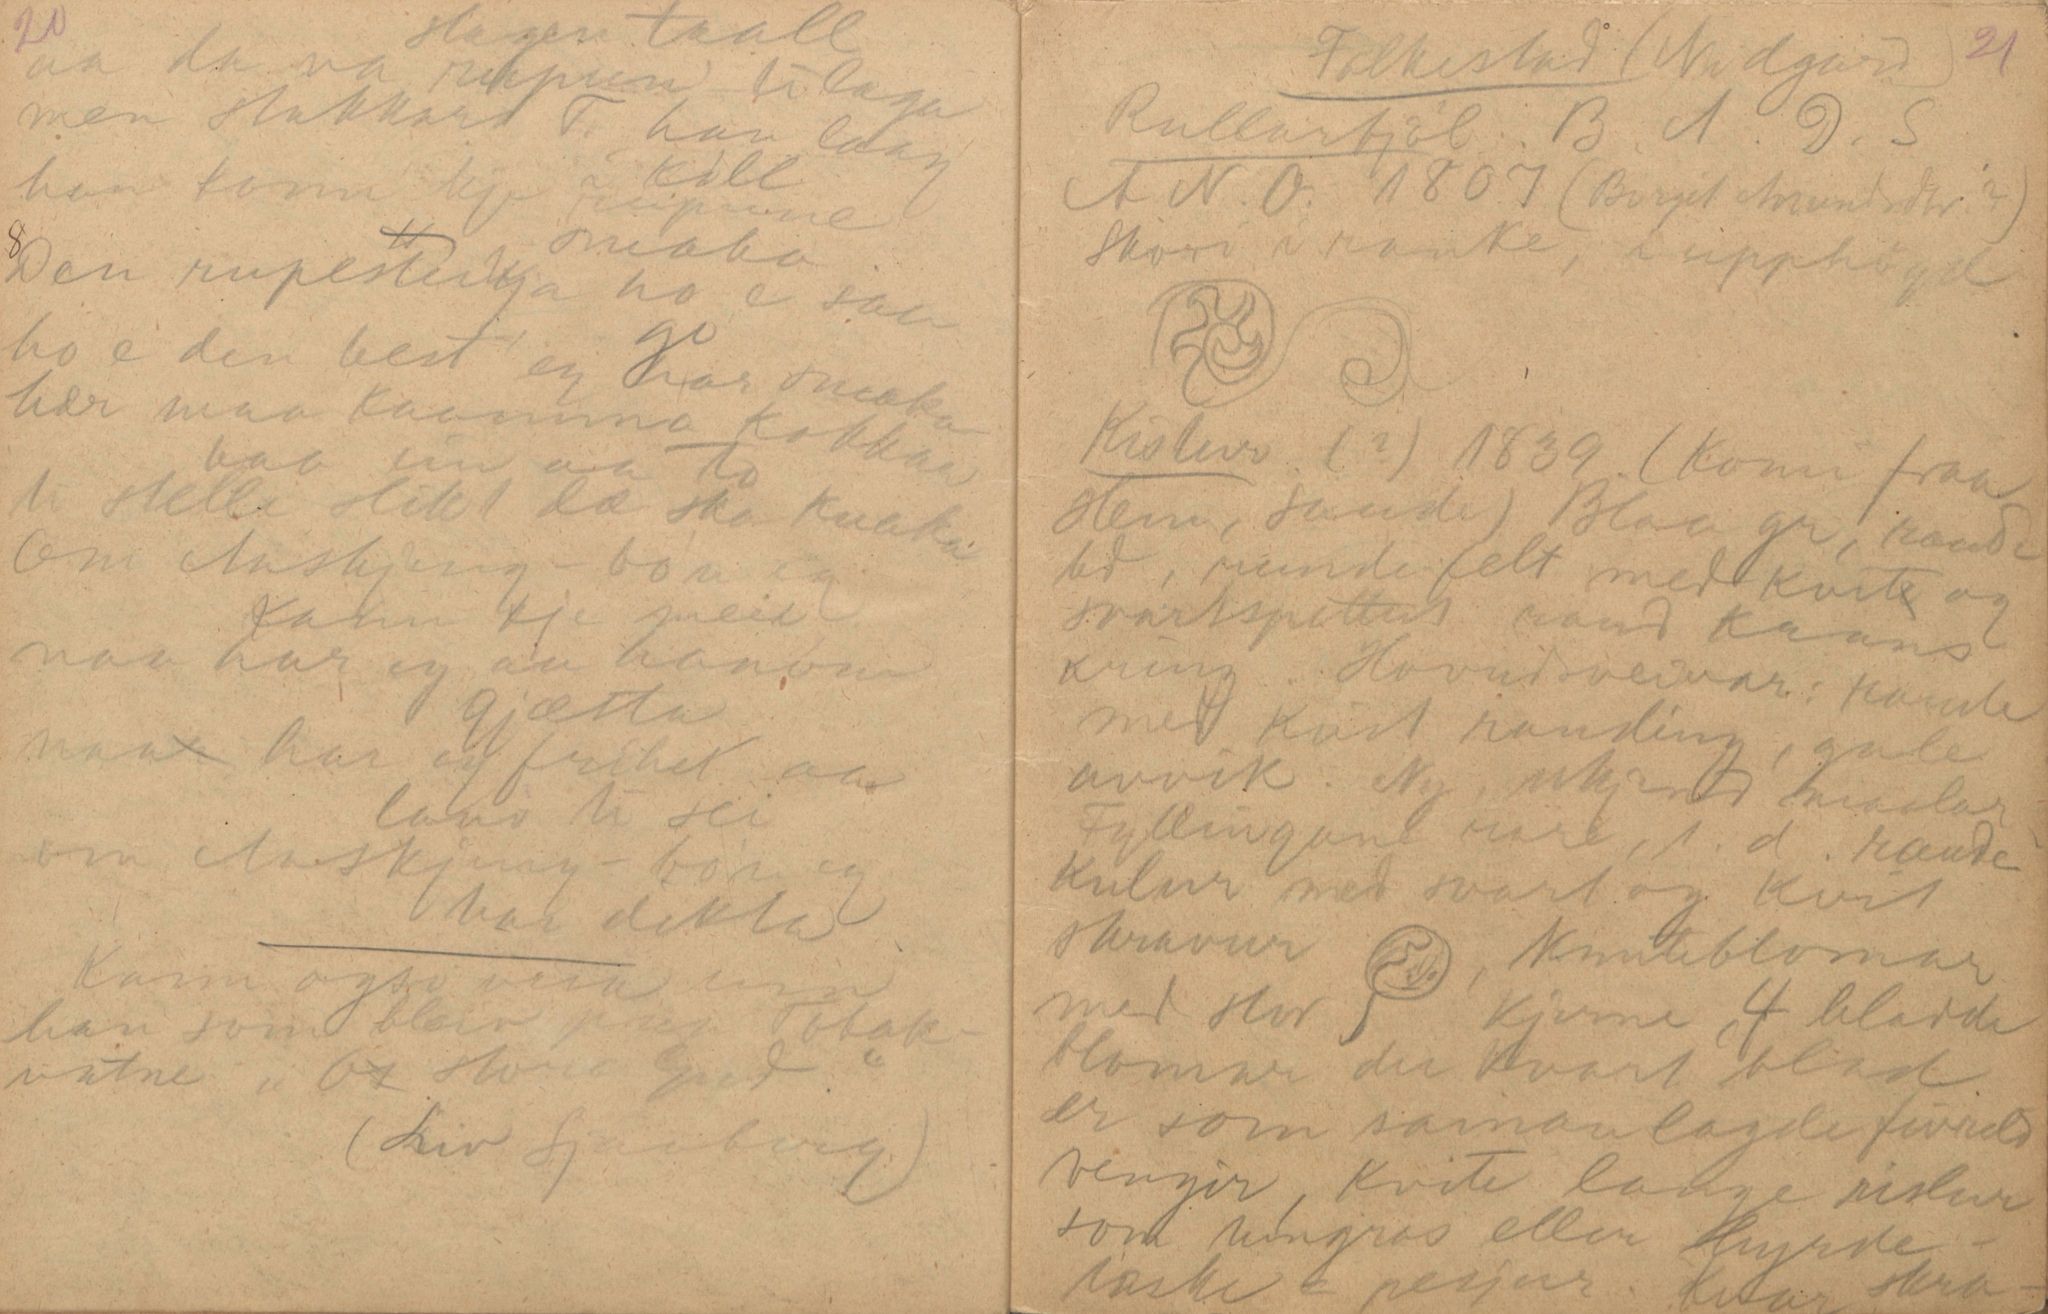 20
slagen taall
aa da va rupun tilaga
men stakkars T. han laag
han kom kje i kåll
rupune
smaka
8 Den rupesteikja ho e saa
go
ho e den best eg har smaka
her maa kaamma kokkaa
baa ein aa to
ti stelle slikt dæ ska knaka
Om Aaskjeng-bø'n eg
kann kje meir
naa har eg aa hanom
gjætta
naa har eg frihet aa
lauv ti sei
om Aaskjeng-bø'n eg
har dikta
Kann ogso vera um
han som bleiv paa Tobak-
vatne, "Os store Gud"
(Liv Sjauborg)
21
Folkestad (Nedgard)
Rullarfjøl. B. A. D. S
A N. O. 1807 (Borgit Amundsdtr. ?)
Skori i ranke, i upphøgd
Kistur (?) 1839. (Komi fraa
Stem, Saude) Blaa gr, raude
bd, runde felt med kvit og
svartspettut rand kaans
kring. Hovudsveivar: raude
med kvit randing, gule
avvik. Ny, ukjend maalar
Fyllingane rare, t. d. raude
kulur med svart og kvit
skravur, Knuteblomar
med stor kjerne, 4 bladde
blomar der kvart blad
er som samanlagde fivreld
vengir, kvite lange ristur
som ungras eller Hyrde-
taske - pesjur. Kvar skra-